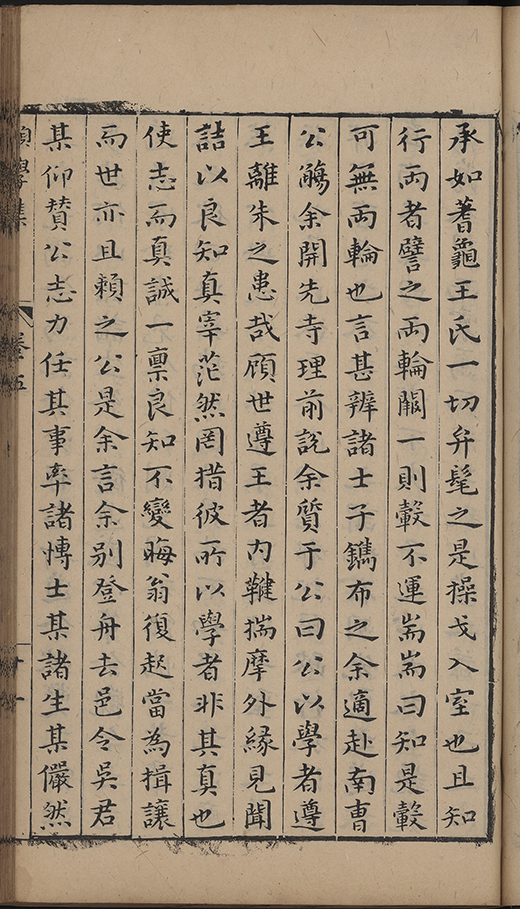 承如蓍龜王氏一切弁髦之是操戈入室也且知
行兩者譬之兩輪闕一則轂不運耑耑曰知是轂
可無兩輪也言甚辨諸士子鐫布之余適赴南曹
公觴余開先寺理前說余質于公曰公以學者遵
王離朱之患哉顧世遵王者內鞬揣摩外緣見聞
詰以良知真宰茫然罔措彼所以學者非其真也
使志而真誠一稟良知不變晦翁復起當為揖讓
而世亦且賴之公是余言余別登舟去邑令吳君
某仰贊公志力任其事率諸博士某諸生某儼然
集
卷五